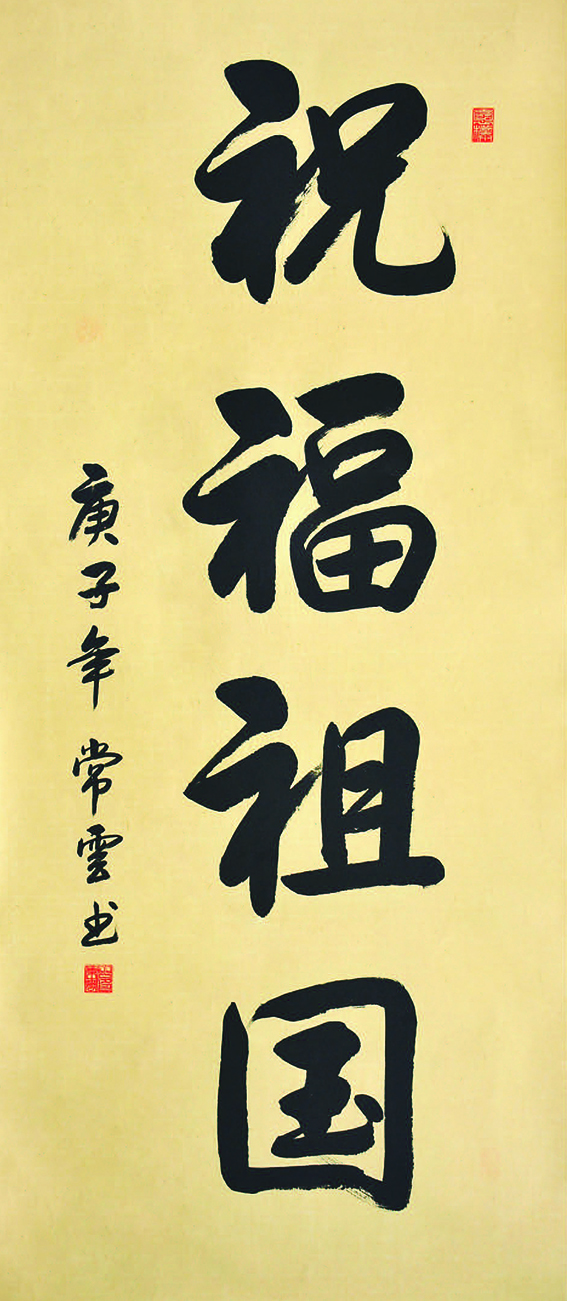 祝福祖国
庚子年 常雲书